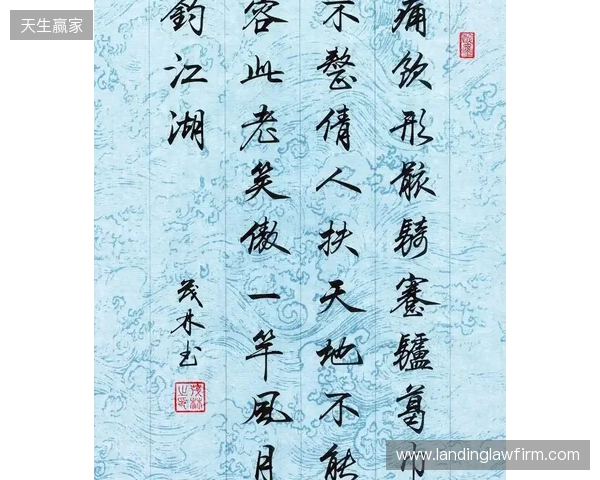 天生赢家
痛飲形骸騎蹇驢葛巾
不整倩人扶天地不能
容此老笑傲一竿風月
釣江湖
茂林书
www.landinglawfirm.com